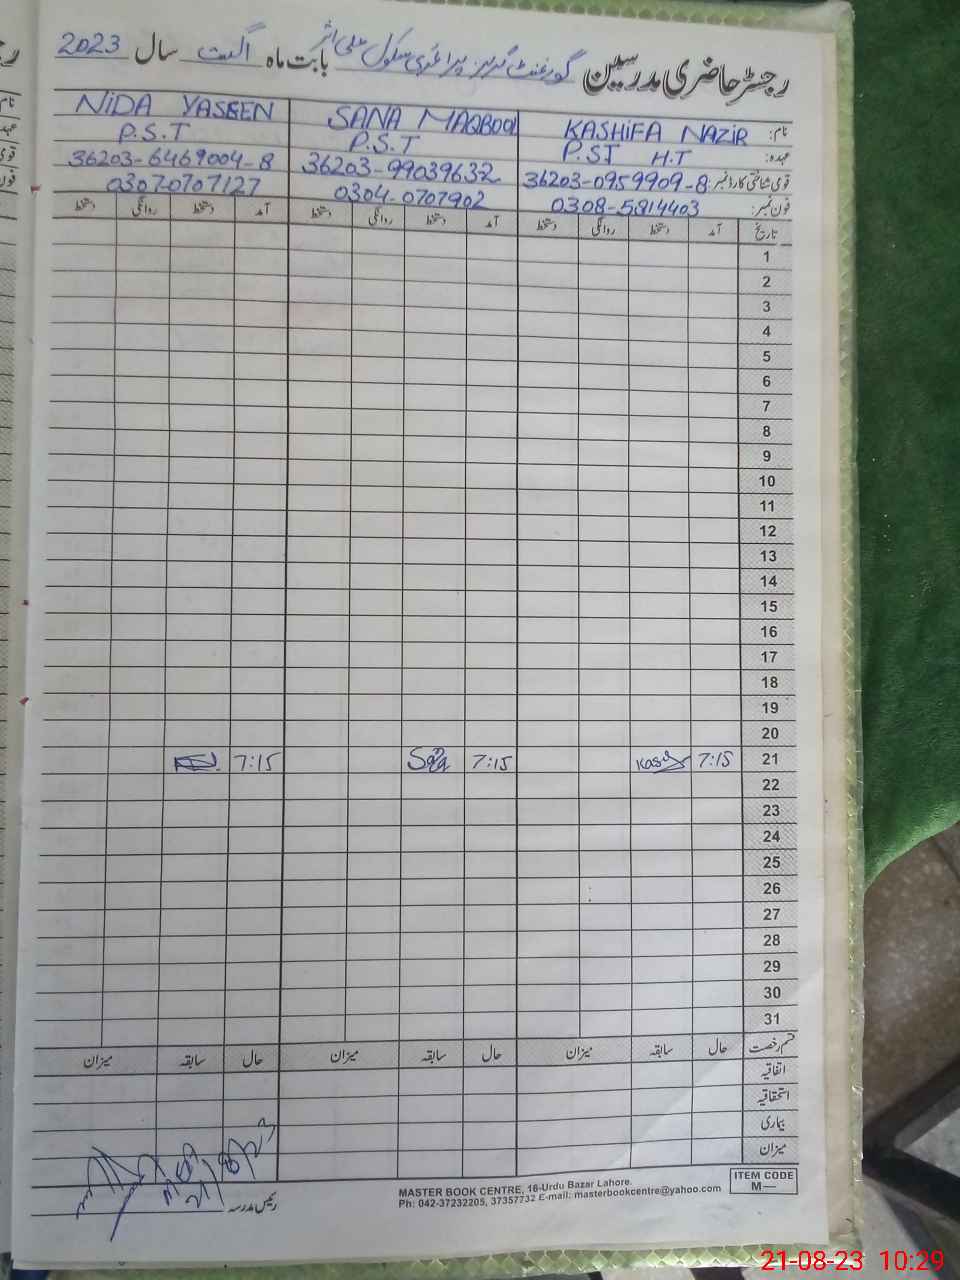 رجسٹر حاضری مدرسین گورنمنٹ گرلز پرائمری سکول بابت ماہ اگست سال 2023
نام: KASHIFA NAZIR SANA MAQBOOL NIDA YASEEN
عہدہ: P.ST H.T P.S.T P.S.T
قومی شناختی کارڈ نمبر: 36203-0959909-8 36203-99039632 36203-6469004-8
فون نمبر: 0308-5814403 0304-0707902 0307-0707127
تاریخ آمد دستخط روانگی دستخط آمد دستخط روانگی دستخط آمد دستخط روانگی دستخط
1
2
3
4
5
6
7
8
9
10
11
12
13
14
15
16
17
18
19
20
21 7:15 7:15 Sana 7:15
22
23
24
25
26
27
28
29
30
31
قسم رخصت حال سابقہ میزان حال سابقہ میزان حال سابقہ میزان
اتفاقیہ
استحقاقیہ
بیماری
میزان
رئیس مدرسہ
MASTER BOOK CENTRE, 16-Urdu Bazar Lahore.
Ph: 042-37232205, 37357732 E-mail: masterbookcentre@yahoo.com
ITEM CODE
M—
21-08-23 10:29